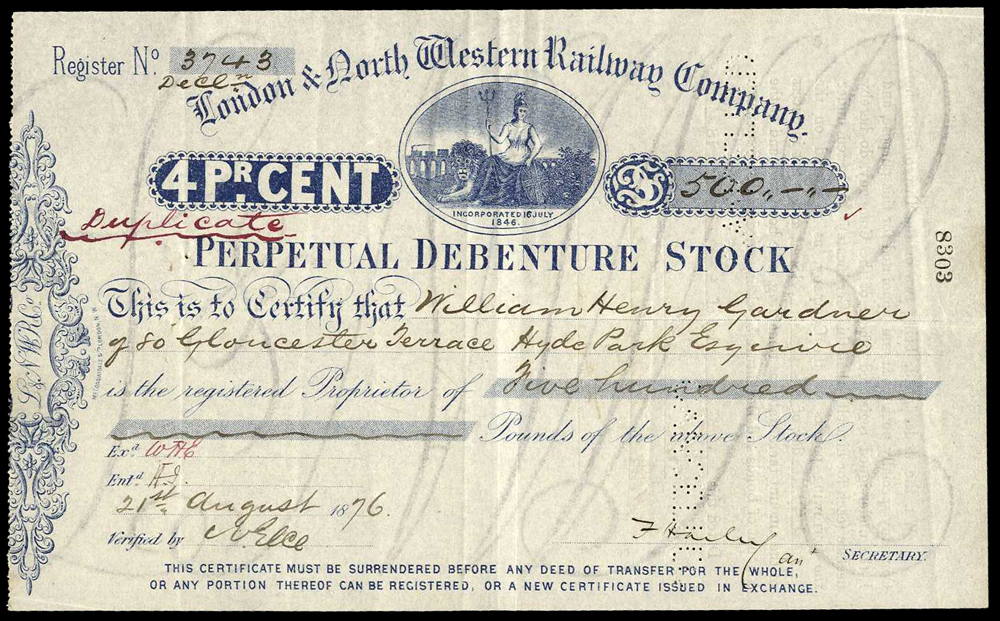 Register No 3743
Decln
London & North Western Railway Company.
4 PR CENT
INCORPORATED 16 JULY
1846.
£ 500,,-,,-
Duplicate
PERPETUAL DEBENTURE STOCK
8303
This is to Certify that William Henry Gardner
of 80 Gloucester Terrace Hyde Park Esquire
is the registered Proprietor of Five hundred
Pounds of the above Stock.
Exd WHE
Entd
21st August 1876.
Verified by
SECRETARY.
L & N.W.R. Co.
THIS CERTIFICATE MUST BE SURRENDERED BEFORE ANY DEED OF TRANSFER FOR THE WHOLE,
OR ANY PORTION THEREOF CAN BE REGISTERED, OR A NEW CERTIFICATE ISSUED IN EXCHANGE.